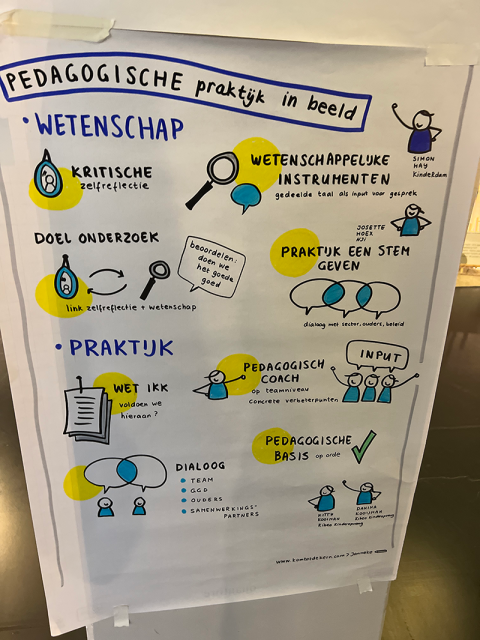 PEDAGOGISCHE praktijk in beeld
• WETENSCHAP
SIMON
HAY
Kinderdam
KRITISCHE
zelfreflectie
WETENSCHAPPELIJKE
INSTRUMENTEN
gedeelde taal als input voor gesprek
DOEL ONDERZOEK
beoordelen:
doen we
het goede
goed
link zelfreflectie + wetenschap
JOSETTE
HOEX
NJI
PRAKTIJK EEN STEM
GEVEN
dialoog met sector, ouders, beleid
• PRAKTIJK
WET IKK
voldoen we
hieraan?
PEDAGOGISCH
COACH
op teamniveau
concrete verbeterpunten
INPUT
PEDAGOGISCHE
BASIS op orde
DIALOOG
TEAM
GGD
OUDERS
SAMENWERKINGS-
PARTNERS
KOOIMAN
KOOIJMAN
www.komtotdekern.com > Janneke